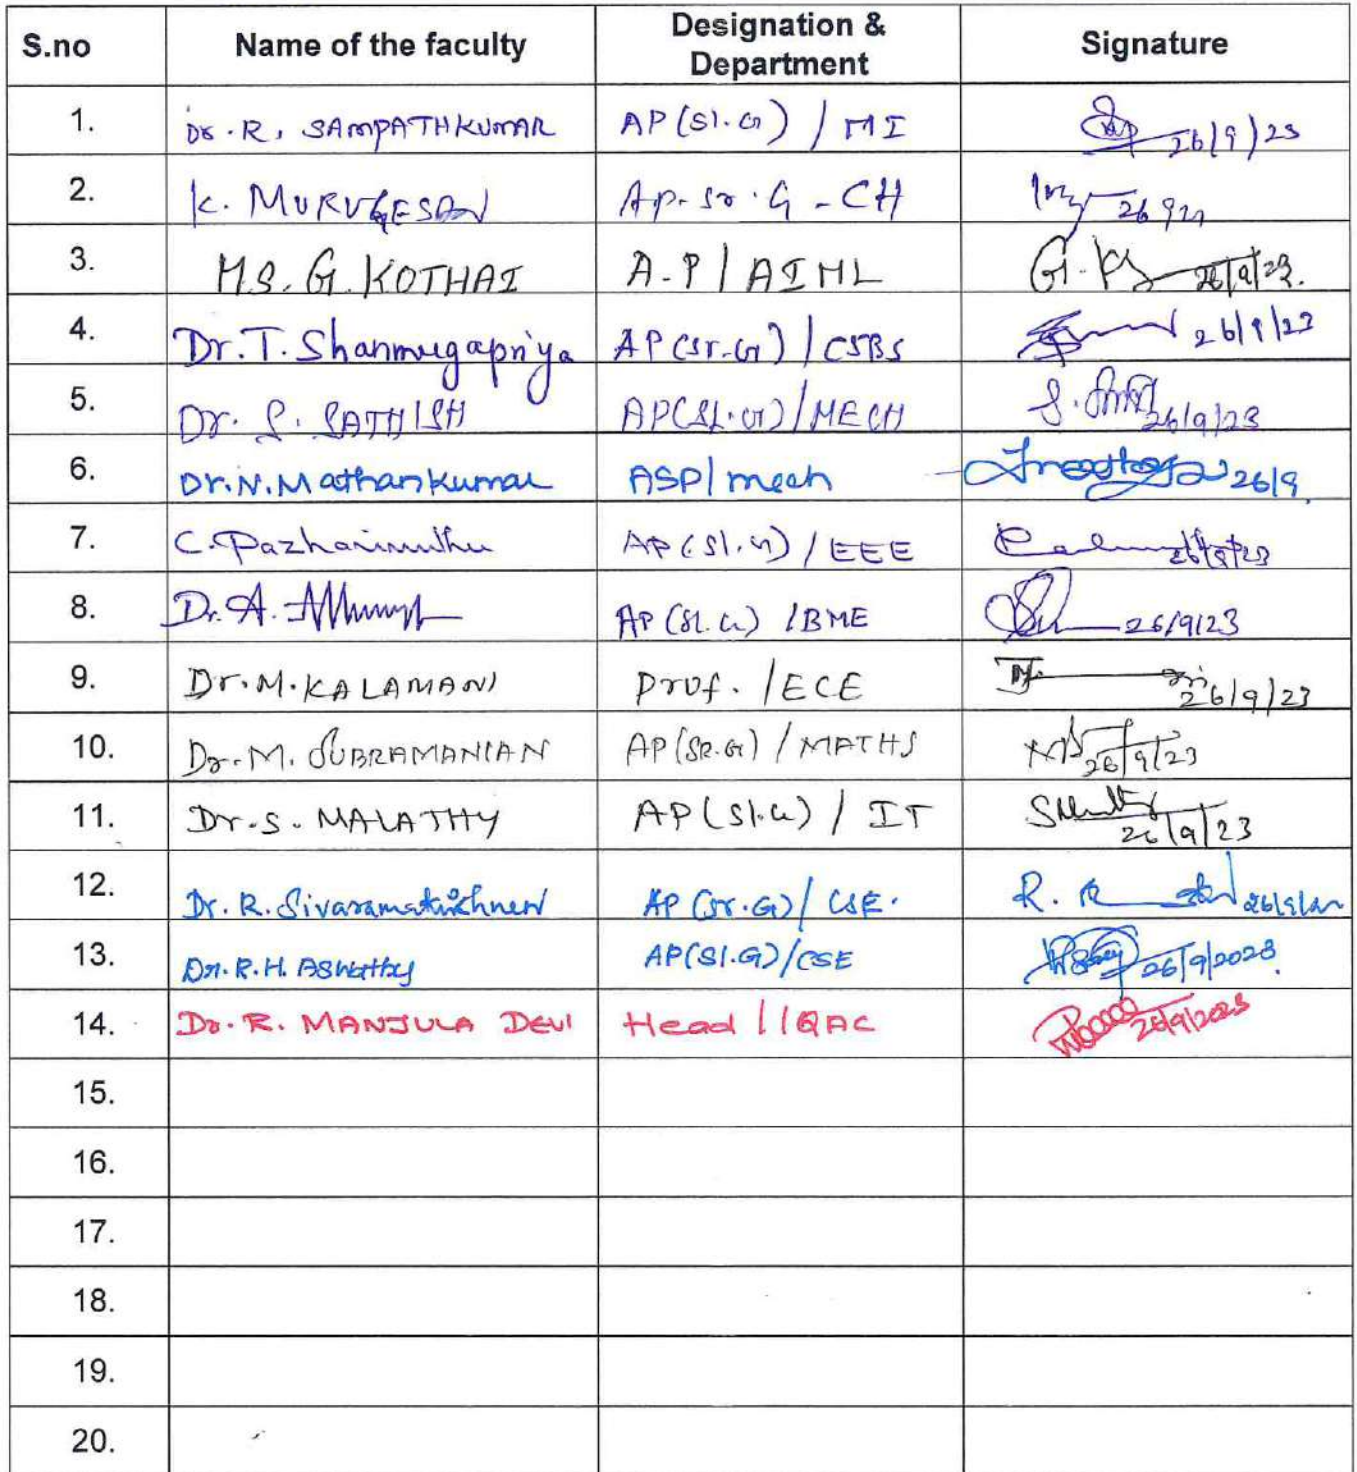 S.no Name of the faculty Designation & Department Signature
1. Dr. R. SAMPATHKUMAR AP(Sl.G) / MI 26/9/23
2. K. MURUGESAN Ap. Sr. G - CH 26
3. M.S. G. KOTHAI A.P / AIML G. 26/9/23.
4. Dr. T. Shanmugapriya AP(Sr.G) / CSBS 26/9/23
5. Dr. S. SATHISH AP(Sl.G) / MECH S. 26/9/23
6. Dr. N. Mathankumar ASP/mech 26/9
7. C. Pazhanimuthu AP(Sl.G) / EEE 26/9/23
8. Dr. A. AP(Sl.G) /BME 26/9/23
9. Dr. M. KALAMANI Prof. /ECE 26/9/23
10. Dr. M. SUBRAMANIAN AP(SR.G) / MATHS 26/9/23
11. Dr. S. MALATHY AP(Sl.G) / IT 26/9/23
12. Dr. R. Sivaramakrishnen AP(Sr.G)/ CSE. R.
13. Dr. R.H. Aswathy AP(Sl.G)/CSE 26/9/2023
14. Dr. R. MANJULA DEVI Head / IQAC 26/9/2023
15.
16.
17.
18.
19.
20.